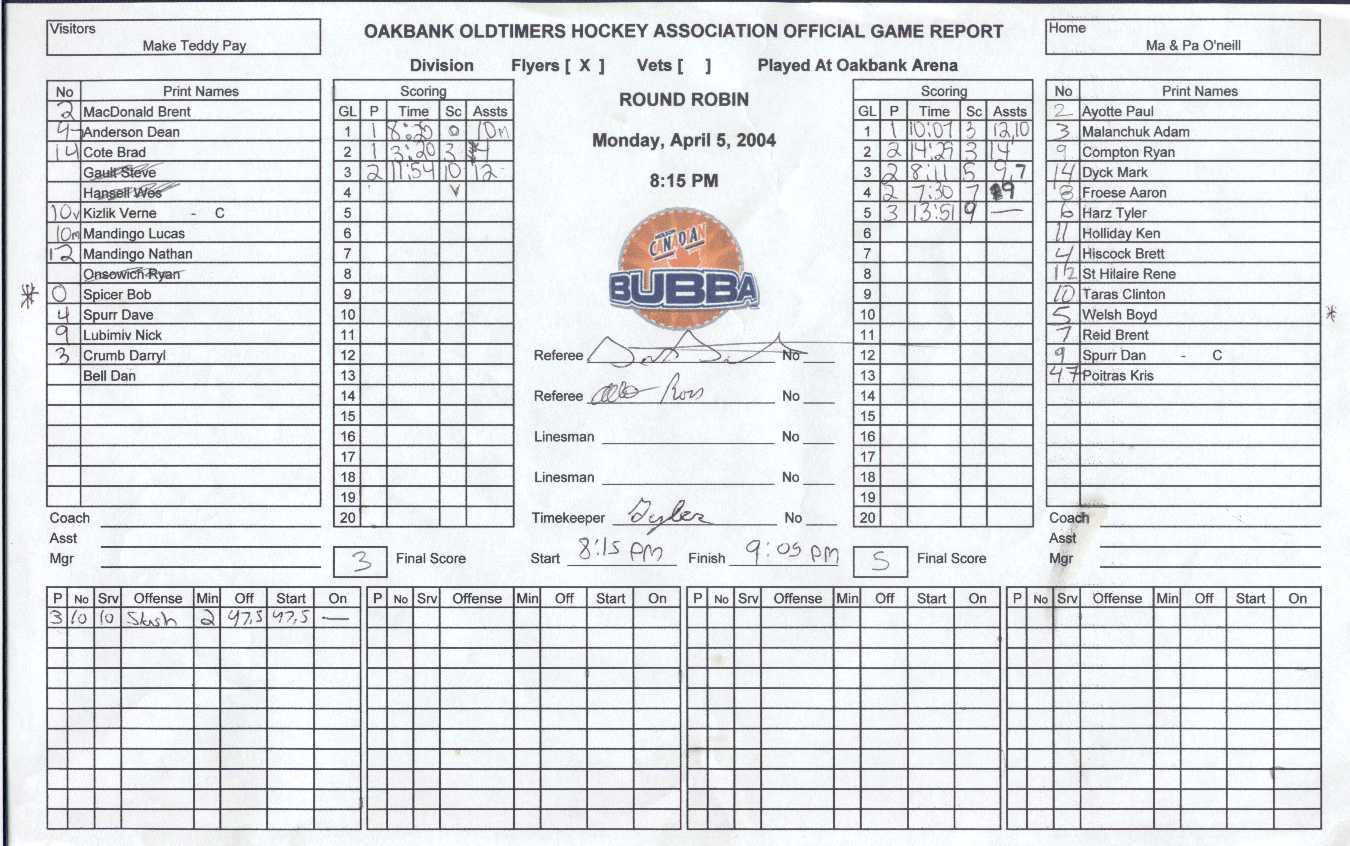 Visitors
Make Teddy Pay
OAKBANK OLDTIMERS HOCKEY ASSOCIATION OFFICIAL GAME REPORT
Home
Ma & Pa O'neill
Division Flyers [ X ] Vets [ ] Played At Oakbank Arena
ROUND ROBIN
Monday, April 5, 2004
8:15 PM
MOLSON CANADIAN
BUBBA
No Print Names
2 MacDonald Brent
4 Anderson Dean
14 Cote Brad
Gault Steve
Hansell Wes
10v Kizlik Verne - C
10m Mandingo Lucas
12 Mandingo Nathan
Onsowich Ryan
* 0 Spicer Bob
4 Spurr Dave
9 Lubimiv Nick
3 Crumb Darryl
Bell Dan
Coach
Asst
Mgr
Scoring
GL P Time Sc Assts
1 1 8:20 0 10m
2 1 3:20 3 4
3 2 11:54 10 12
4 v
5
6
7
8
9
10
11
12
13
14
15
16
17
18
19
20
3 Final Score
Referee No
Referee Ross No
Linesman No
Linesman No
Timekeeper Tyler No
Start 8:15 pm Finish 9:05 pm
Scoring
GL P Time Sc Assts
1 1 10:07 3 12,10
2 2 14:29 3 14
3 2 8:11 5 9,7
4 2 7:30 7 9
5 3 13:51 9 —
6
7
8
9
10
11
12
13
14
15
16
17
18
19
20
5 Final Score
No Print Names
2 Ayotte Paul
3 Malanchuk Adam
9 Compton Ryan
14 Dyck Mark
8 Froese Aaron
6 Harz Tyler
11 Holliday Ken
4 Hiscock Brett
12 St Hilaire Rene
10 Taras Clinton
5 Welsh Boyd *
7 Reid Brent
9 Spurr Dan - C
47 Poitras Kris
Coach
Asst
Mgr
P No Srv Offense Min Off Start On P No Srv Offense Min Off Start On P No Srv Offense Min Off Start On P No Srv Offense Min Off Start On
3 10 10 Slash 2 47.5 47.5 —